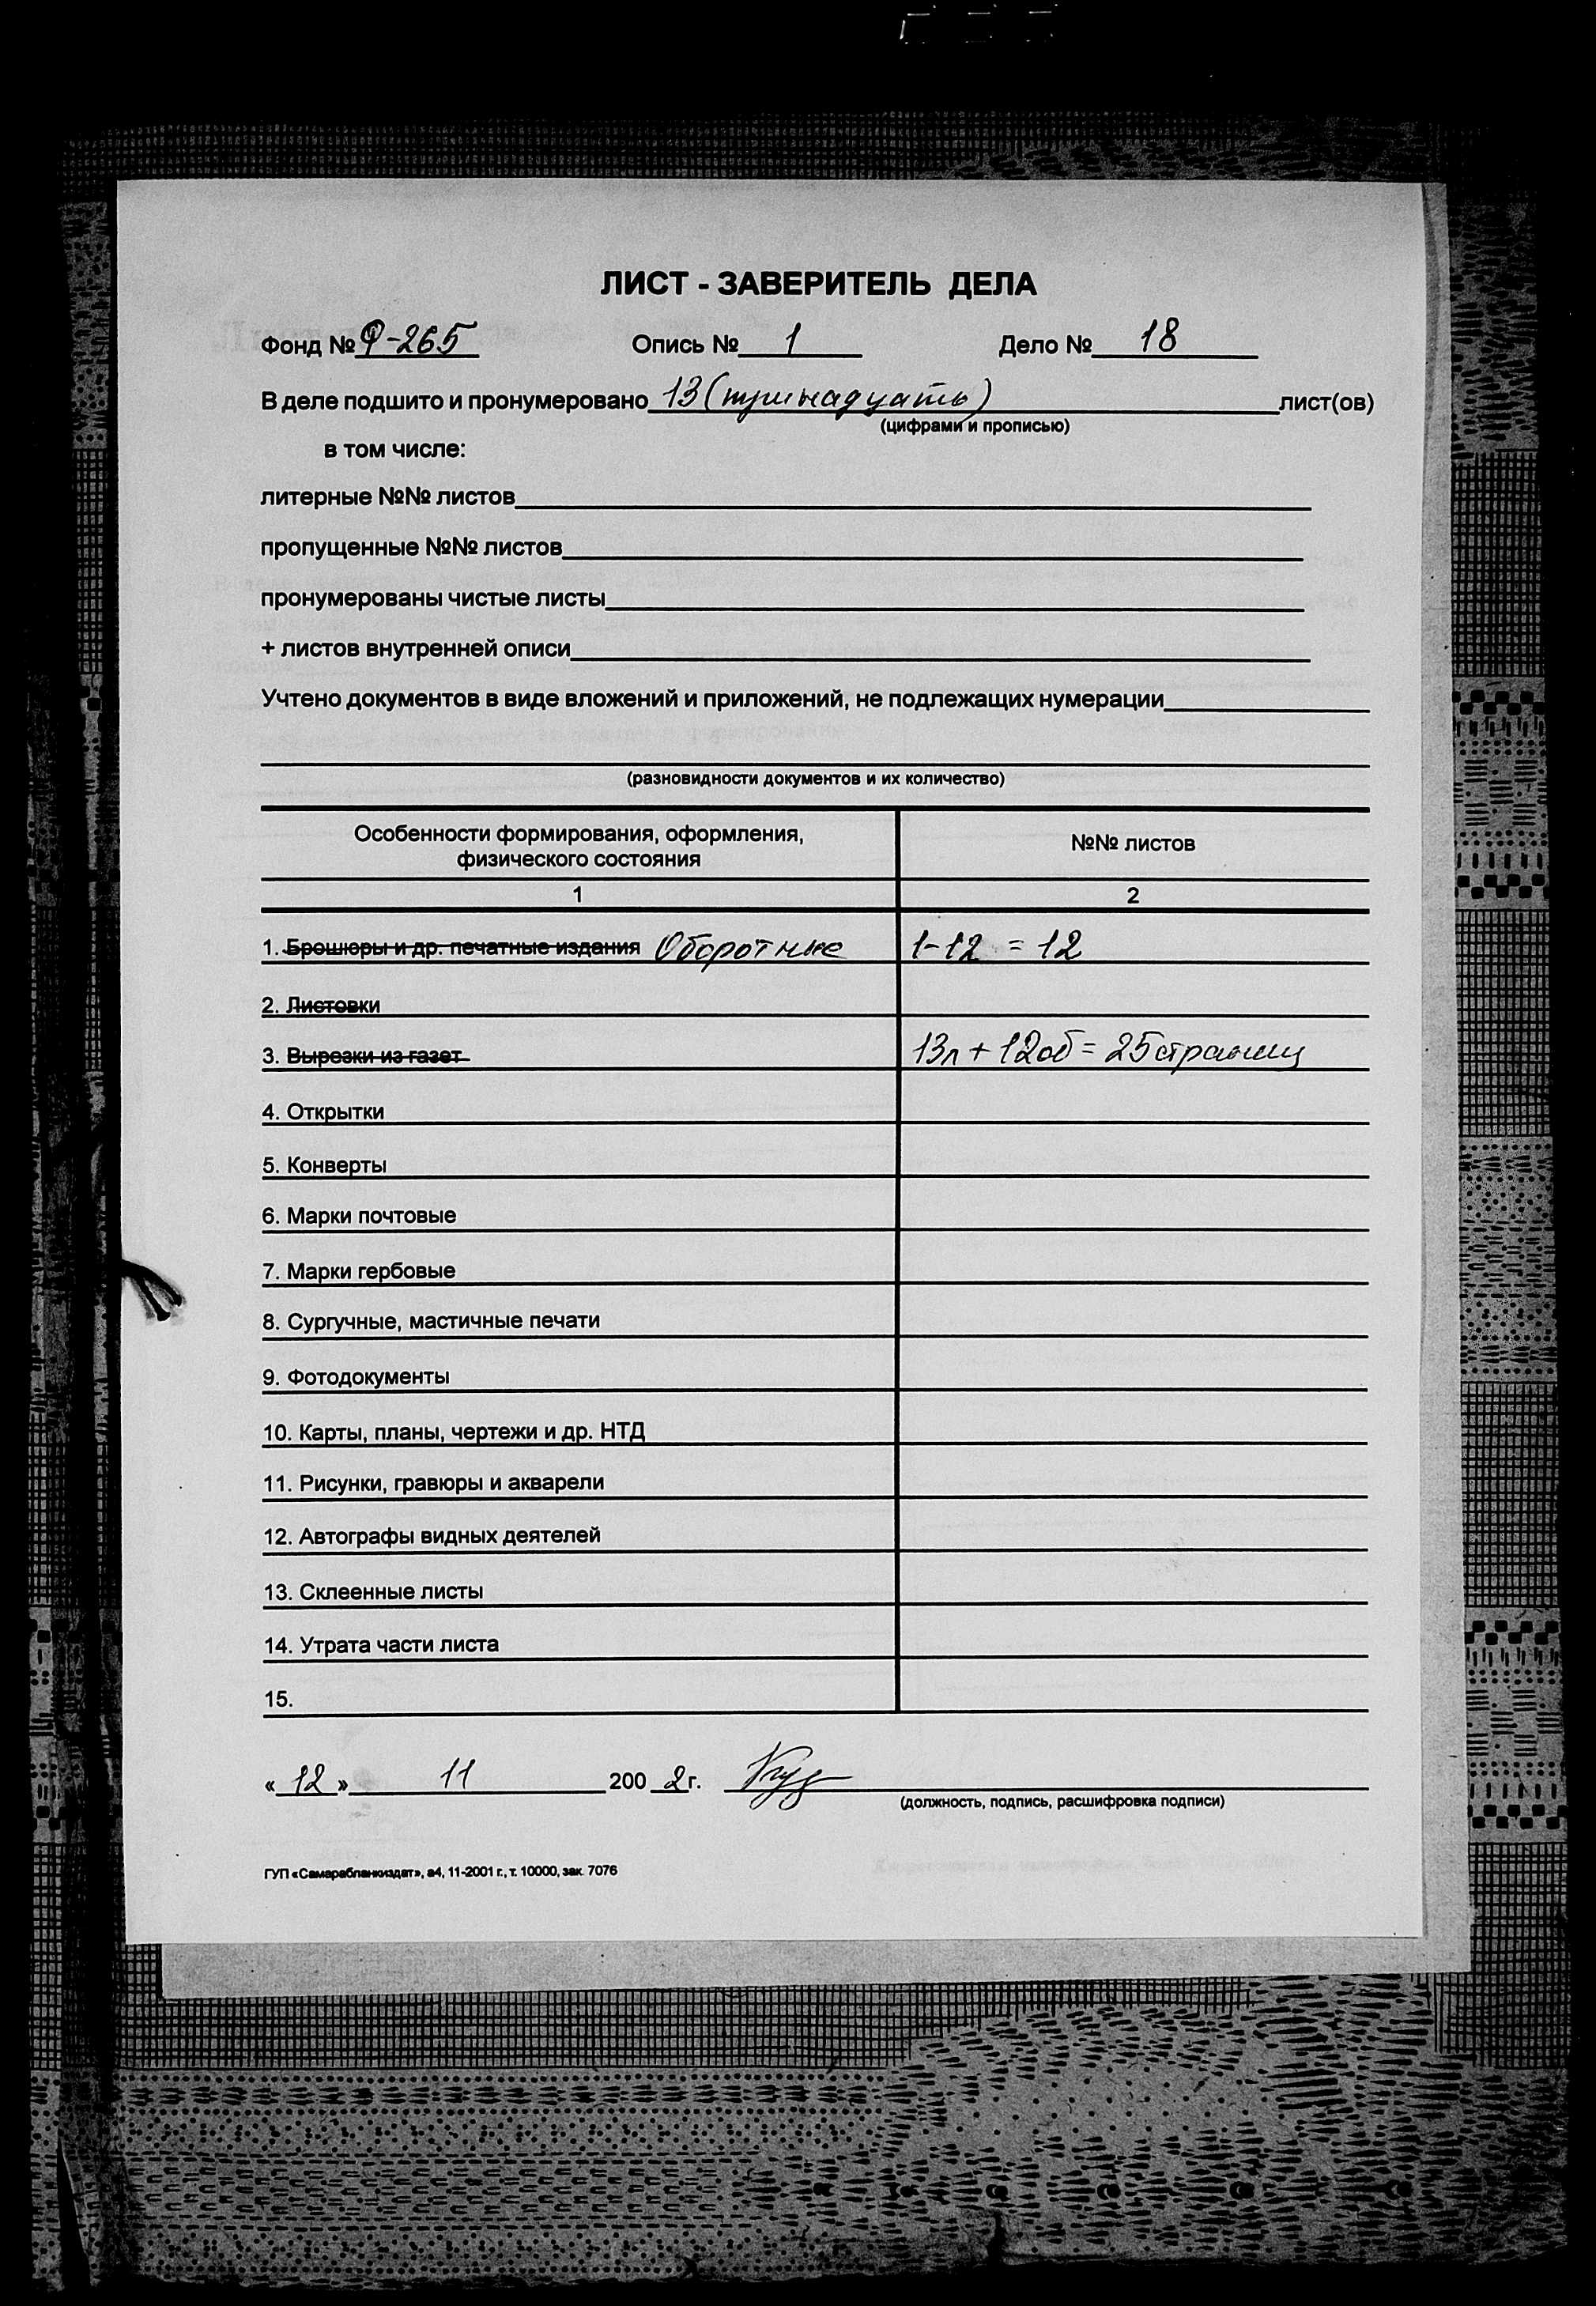 ЛИСТ - ЗАВЕРИТЕЛЬ ДЕЛА
Фонд № Ф-265 Опись № 1 Дело № 18
В деле подшито и пронумеровано 13 (тринадцать) лист(ов)
(цифрами и прописью)
в том числе:
литерные №№ листов
пропущенные №№ листов
пронумерованы чистые листы
+ листов внутренней описи
Учтено документов в виде вложений и приложений, не подлежащих нумерации
(разновидности документов и их количество)
Особенности формирования, оформления, №№ листов
физического состояния
1 2
1. Брошюры и др. печатные издания Оборотные 1-12 = 12
2. Листовки
3. Вырезки из газет 13л + 12об = 25 страниц
4. Открытки
5. Конверты
6. Марки почтовые
7. Марки гербовые
8. Сургучные, мастичные печати
9. Фотодокументы
10. Карты, планы, чертежи и др. НТД
11. Рисунки, гравюры и акварели
12. Автографы видных деятелей
13. Склеенные листы
14. Утрата части листа
15.
« 12 » 11 200 2 г.
(должность, подпись, расшифровка подписи)
ГУП «Самарабланкиздат», а4, 11-2001 г., т. 10000, зак. 7076